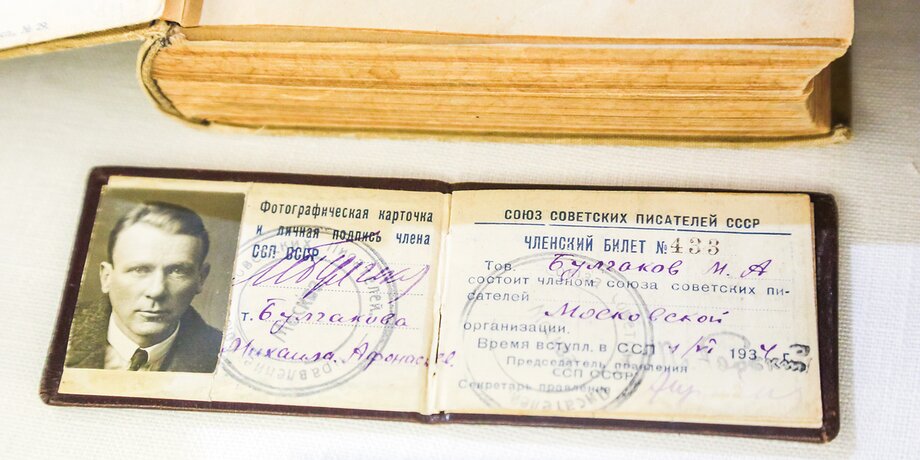 Фотографическая карточка
и личная подпись члена
ССП СССР
т. Булгакова
Михаила Афанасьев.
СОЮЗ СОВЕТСКИХ ПИСАТЕЛЕЙ СССР
ЧЛЕНСКИЙ БИЛЕТ №433
Тов. Булгаков М. А
состоит членом союза советских пи-
сателей
Московской
организации.
Время вступл. в ССП 1/VI 1934 г.
Председатель правления
ССП СССР
Секретарь правления